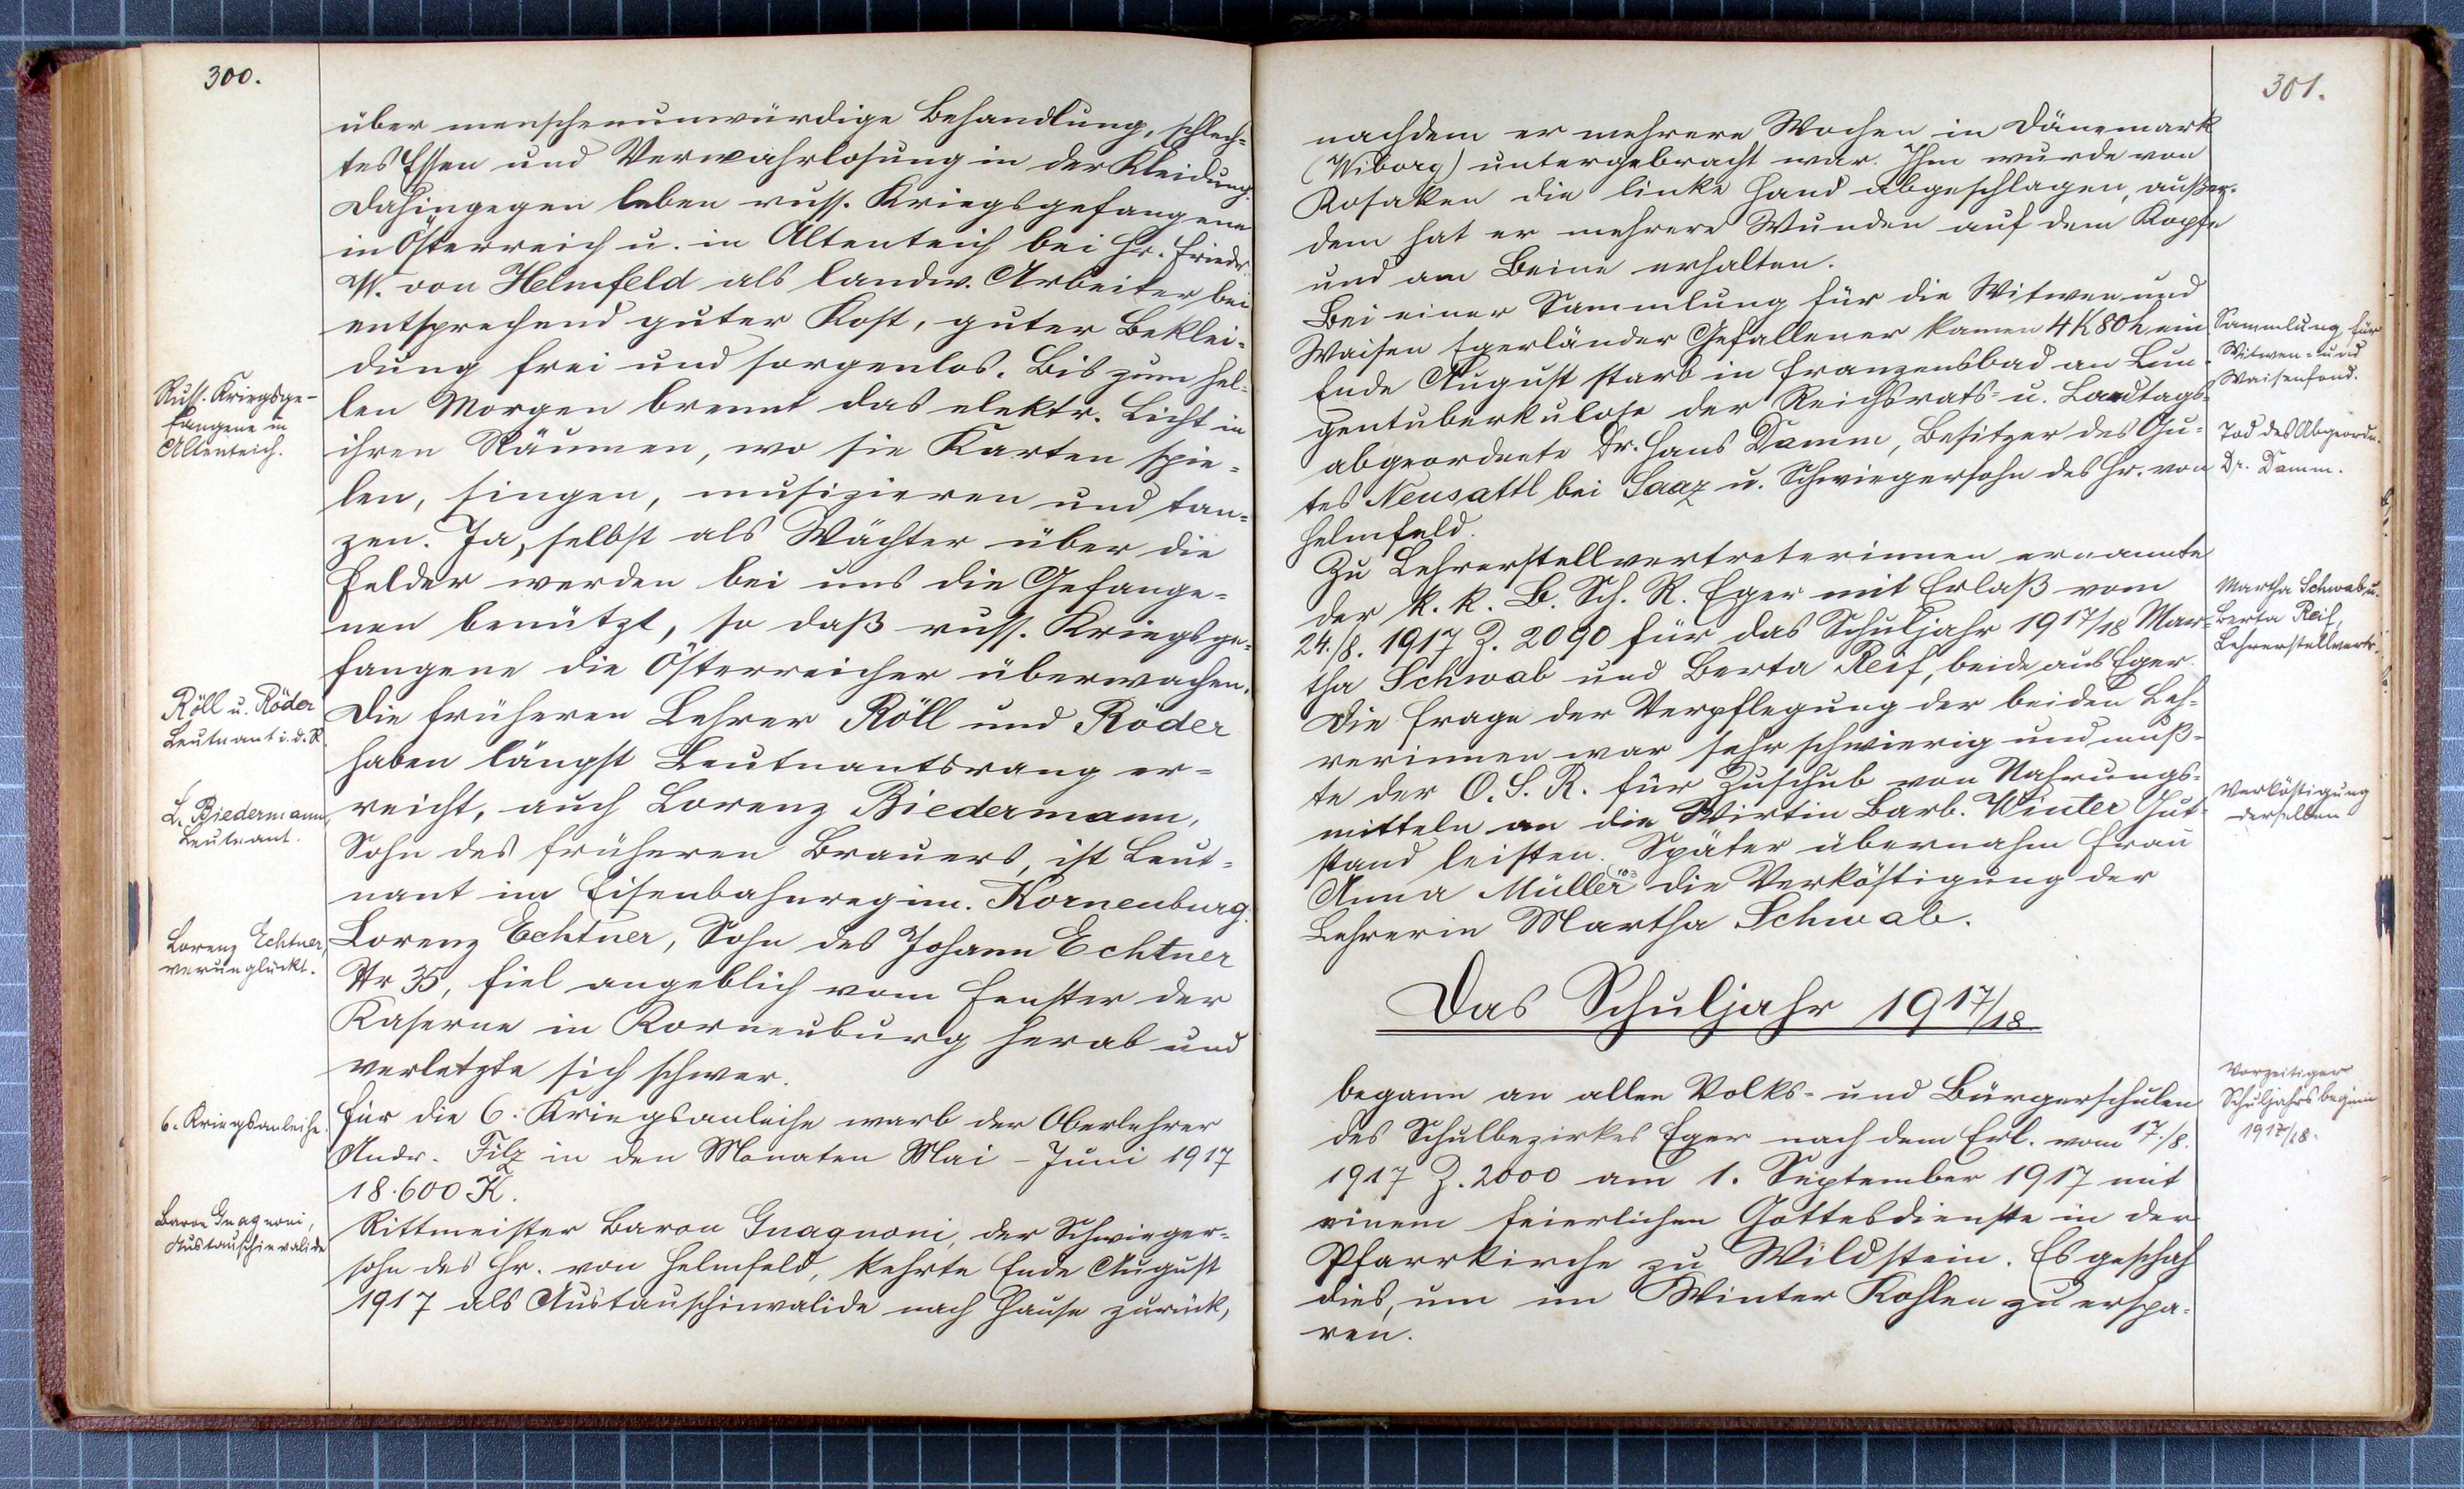 300.
über menschenunwürdige Behandlung, schlech-
tes Essen und Verwahrlosung in der Kleidung.
Dahingegen leben russ. Kriegsgefangene
in Österreich u. in Altenteich bei Hr. Friedr.
W. von Helmfeld als landw. Arbeiter bei
entsprechend guter Kost, guter Beklei-
dung frei und sorgenlos. Bis zum hel-
len Morgen brennt das elektr. Licht in
ihren Räumen, wo sie Karten spie-
len, singen, musizieren und tan-
zen. Ja, selbst als Wächter über die
Felder werden bei uns die Gefange-
nen benützt, so daß russ. Kriegsge-
fangene die Österreicher überwachen.
Die früheren Lehrer Röll und Röder
haben längst Leutnantsrang er-
reicht, auch Lorenz Biedermann,
Sohn des früheren Brauers, ist Leut-
nant im Eisenbahnregim. Korneuburg.
Lorenz Echtner, Sohn des Johann Echtner
Nr 35, fiel angeblich vom Fenster der
Kaserne in Korneuburg herab und
verletzte sich schwer.
Für die 6. Kriegsanleihe warb der Oberlehrer
Andr. Filz in den Monaten Mai - Juni 1917
18.600 K.
Rittmeister Baron Gnagnoni, der Schwieger-
sohn des Hr. von Helmfeld, kehrte Ende August
1917 als Austauschinvalide nach Hause zurück,
Russ. Kriegsge-
fangene in
Altenteich.
Röll u. Röder
Leutnant i. d. R.
L. Biedermann
Leutnant.
Lorenz Echtner,
verunglückt.
6. Kriegsanleihe.
Baron Gnagnoni,
Austauschinvalide
301.
nachdem er mehrere Wochen in Dänemark
(Wiborg) untergebracht war. Ihm wurde von
Kosaken die linke Hand abgeschlagen, außer-
dem hat er mehrere Wunden auf dem Kopfe
und am Beine erhalten.
Bei einer Sammlung für die Witwen und
Waisen Egerländer Gefallener kamen 4 K 80 h ein
Ende August starb in Franzensbad an Lun-
gentuberkulose der Reichsrats- u. Landtags-
abgeordnete Dr. Hans Damm, Besitzer des Gu-
tes Neusattl bei Saaz u. Schwiegersohn des Hr. von
Helmfeld.
Zu Lehrerstellvertreterinnen ernannte
der k. k. B. Sch. R. Eger mit Erlaß vom
24./8. 1917 Z. 2090 für das Schuljahr 1917/18 Mar-
tha Schwab und Berta Reif, beide aus Eger.
Die Frage der Verpflegung der beiden Leh-
rerinnen war sehr schwierig und muß-
te der O. S. R. für Zuschub von Nahrungs-
mitteln an die Wirtin Barb. Winter Gut-
stand leisten. Später übernahm Frau
Anna Müller die Verköstigung der
Lehrerin Martha Schwab.
Das Schuljahr 1917/18
begann an allen Volks- und Bürgerschulen
des Schulbezirkes Eger nach dem Erl. vom 17./8.
1917 Z. 2000 am 1. September 1917 mit
einem feierlichen Gottesdienste in der
Pfarrkirche zu Wildstein. Es geschah
dies, um im Winter Kohlen zu erspa-
ren.
Sammlung für
Witwen- und
Waisenfond.
Tod des Abgeordn.
Dr. Damm.
Martha Schwab u.
Berta Reif,
Lehrerstellvertr.
Verköstigung
derselben
Vorzeitiger
Schuljahrsbeginn
1917/18.